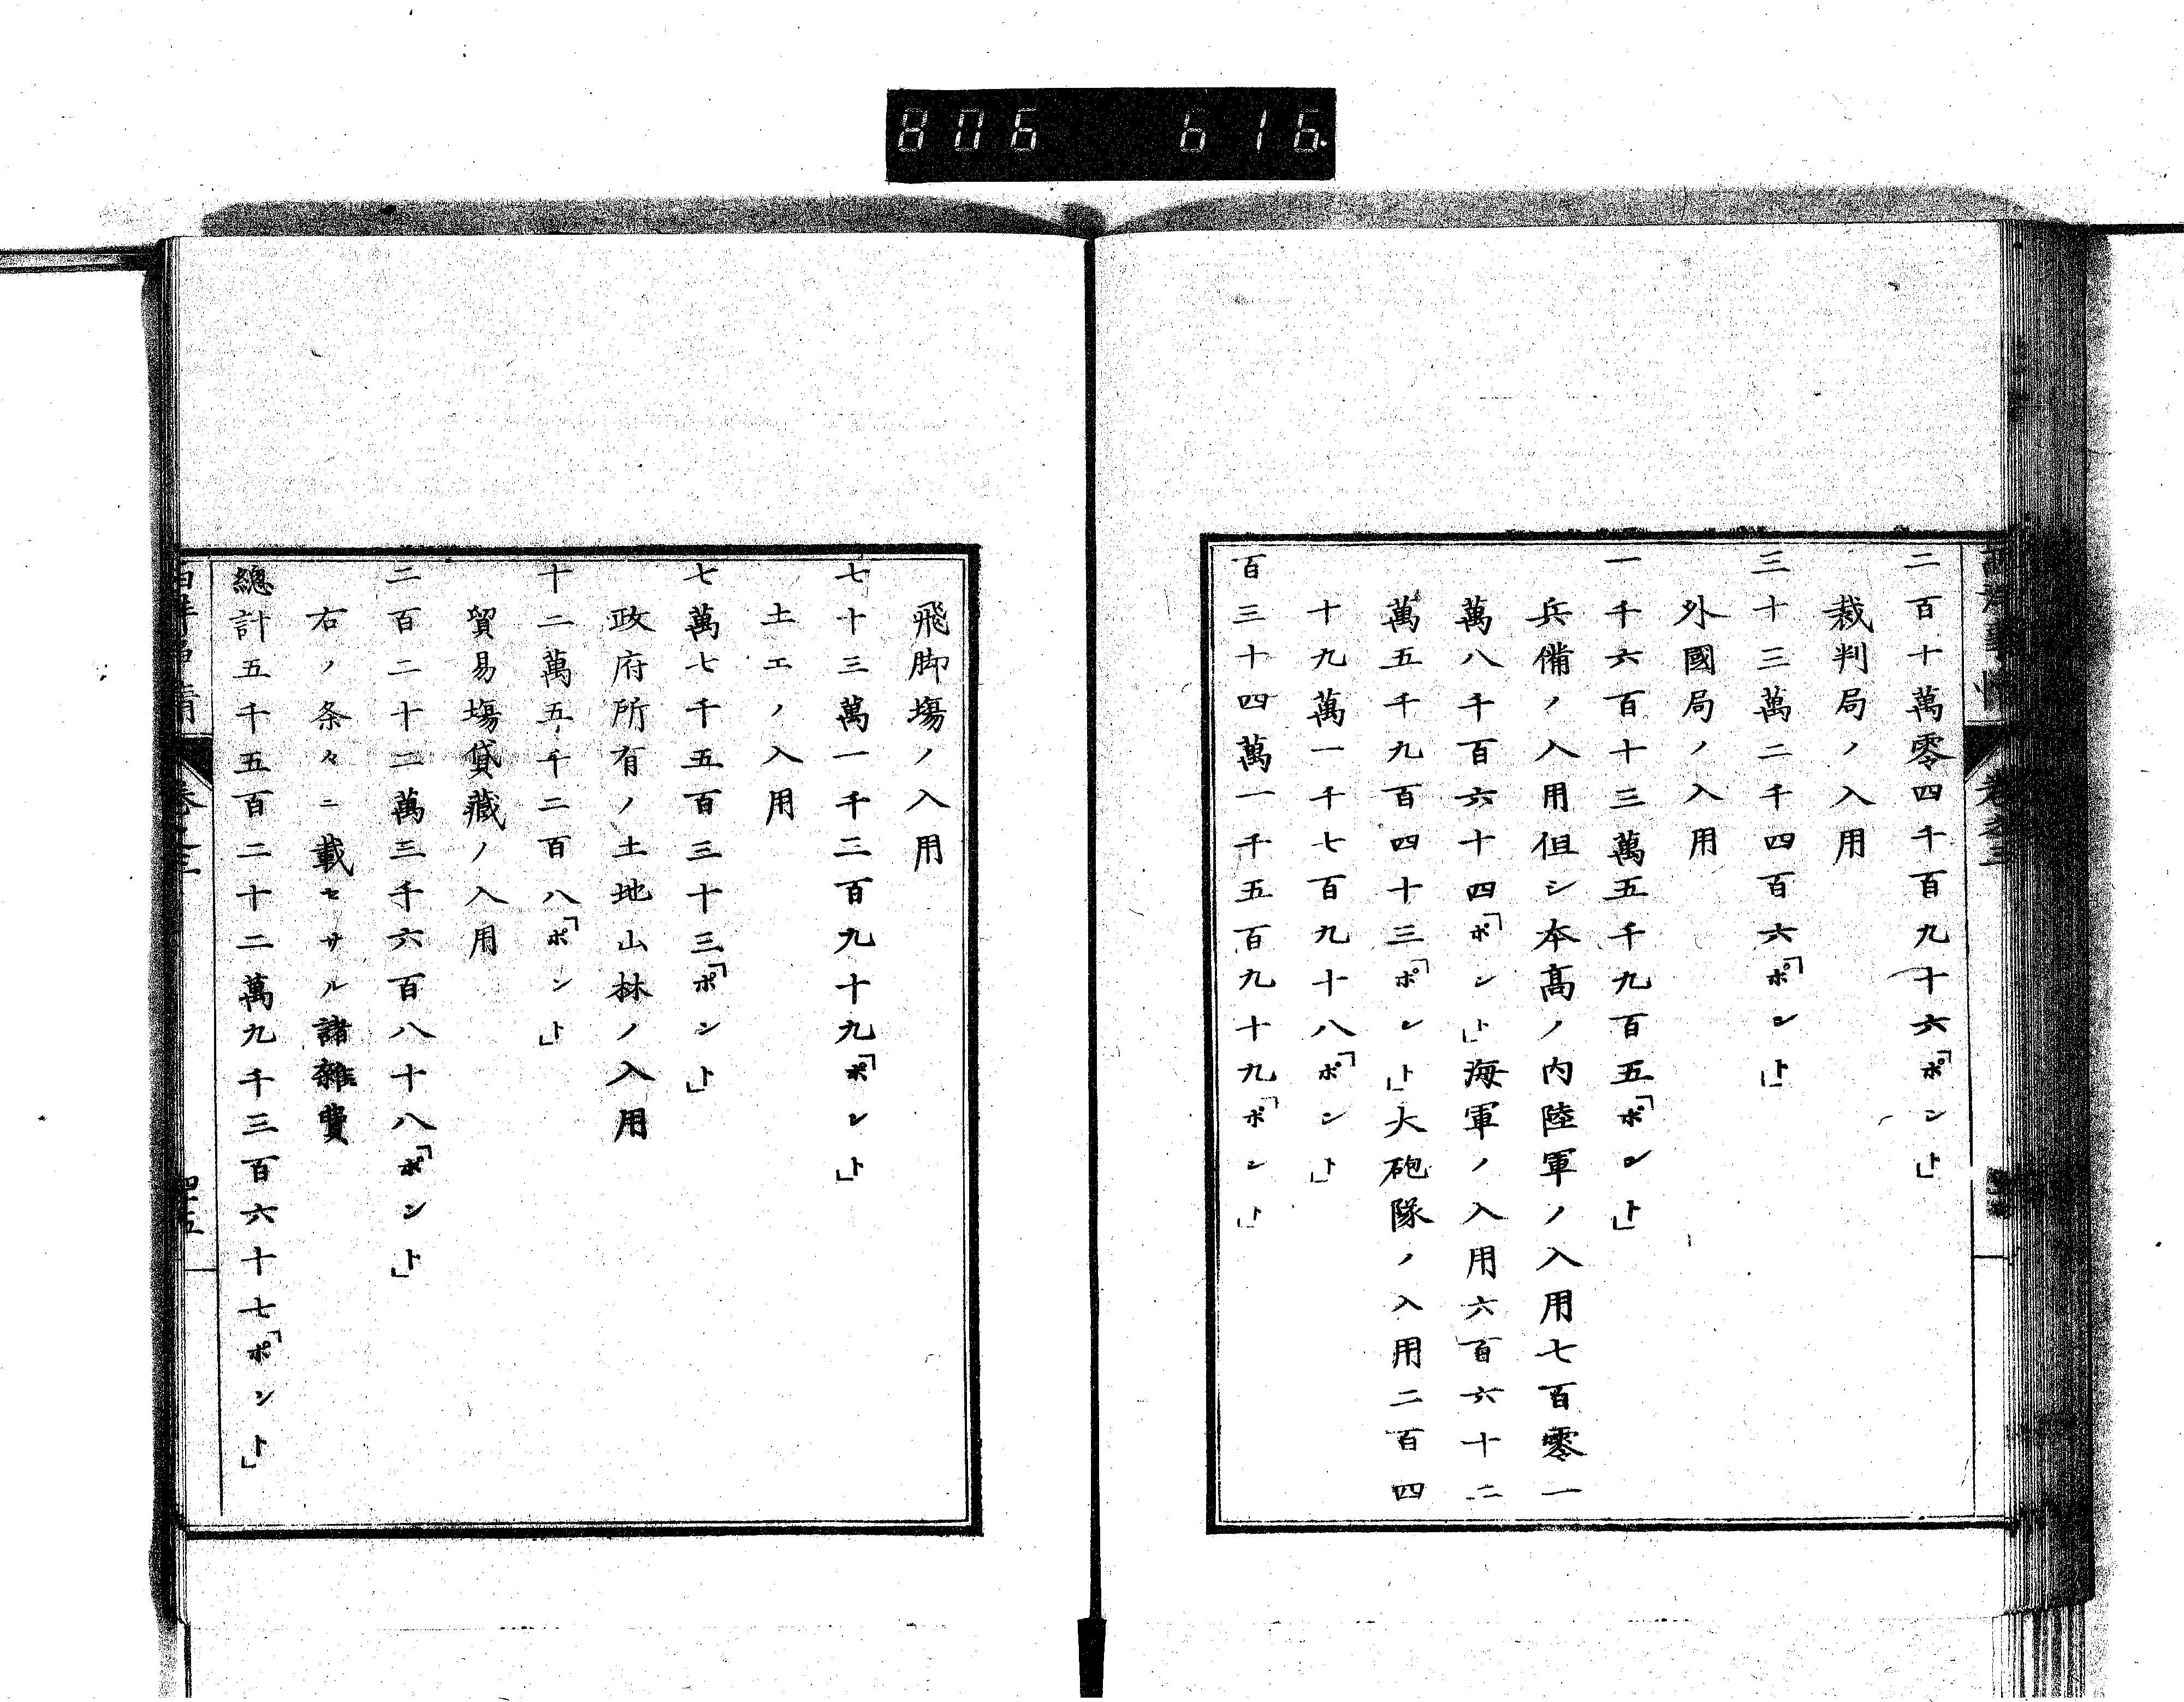 806 616
二百十萬零四千百九十六「ポント」
裁判局ノ入用
三十三萬二千四百六「ポント」
外國局ノ入用
一千六百十三萬五千九百五「ポント」
兵備ノ入用但シ本髙ノ内陸軍ノ入用七百零一
萬八千百六十四「ポント」海軍ノ入用六百六十二
萬五千九百四十三「ポント」大砲隊ノ入用二百四
十九萬一千七百九十八「ポント」
百三十四萬一千五百九十九「ポント」
飛脚塲ノ入用
七十三萬一千二百九十九「ポント」
土工ノ入用
七萬七千五百三十三「ポント」
政府所有ノ土地山林ノ入用
十二萬五千二百八「ポント」
貿易塲貸藏ノ入用
二百二十二萬三千六百八十八「ポント」
右ノ条々ニ載セサル諸雜費
總計五千五百二十二萬九千三百六十七「ポント」